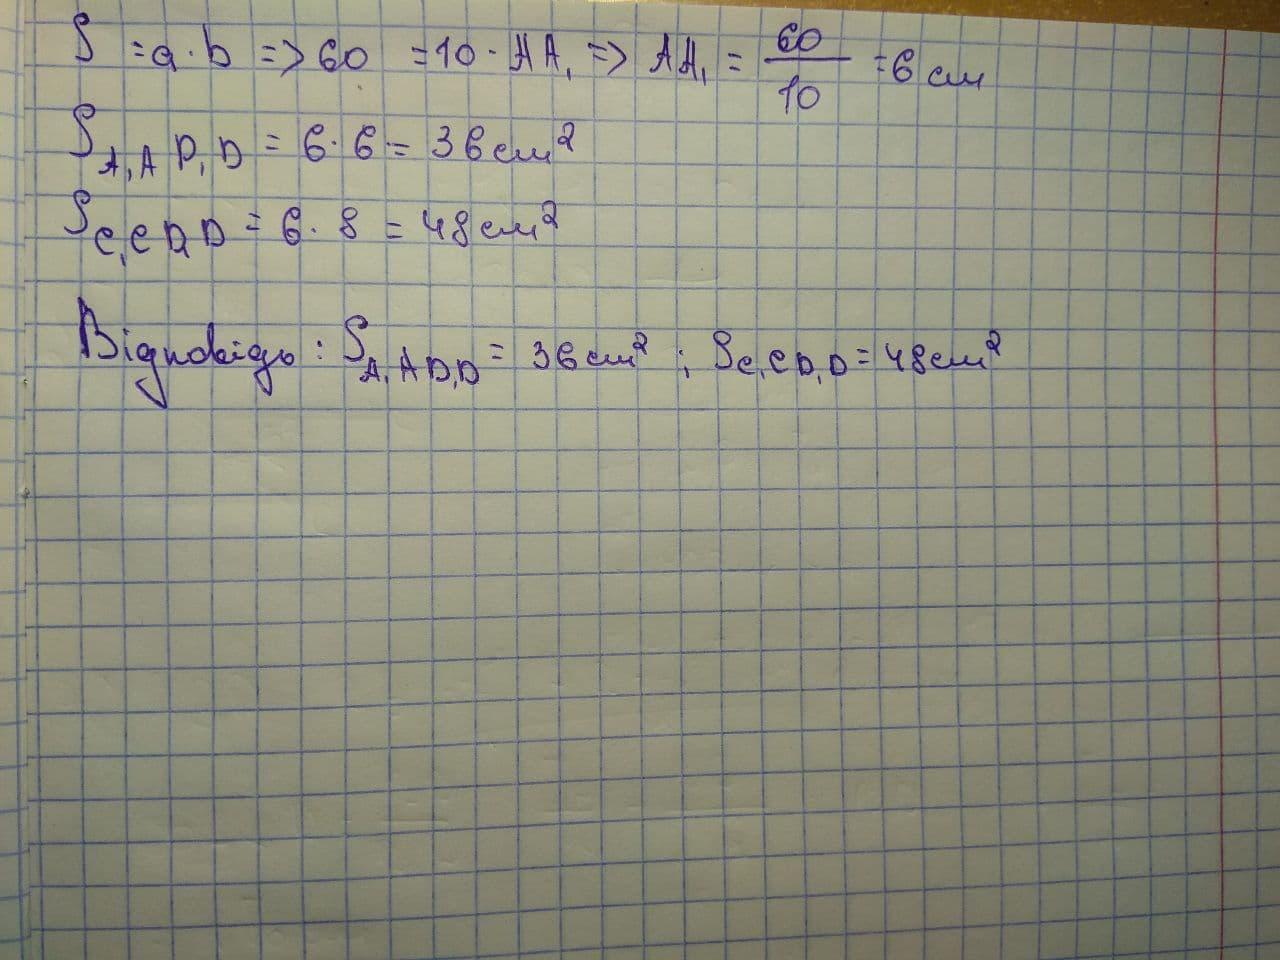 S = a · b => 60 = 10 · AA₁ => AA₁ = 60/10 = 6 см
S A₁AD₁D = 6 · 6 = 36 см²
S C₁CD₁D = 6 · 8 = 48 см²
Відповідь: S A₁AD₁D = 36 см² ; S C₁CD₁D = 48 см²